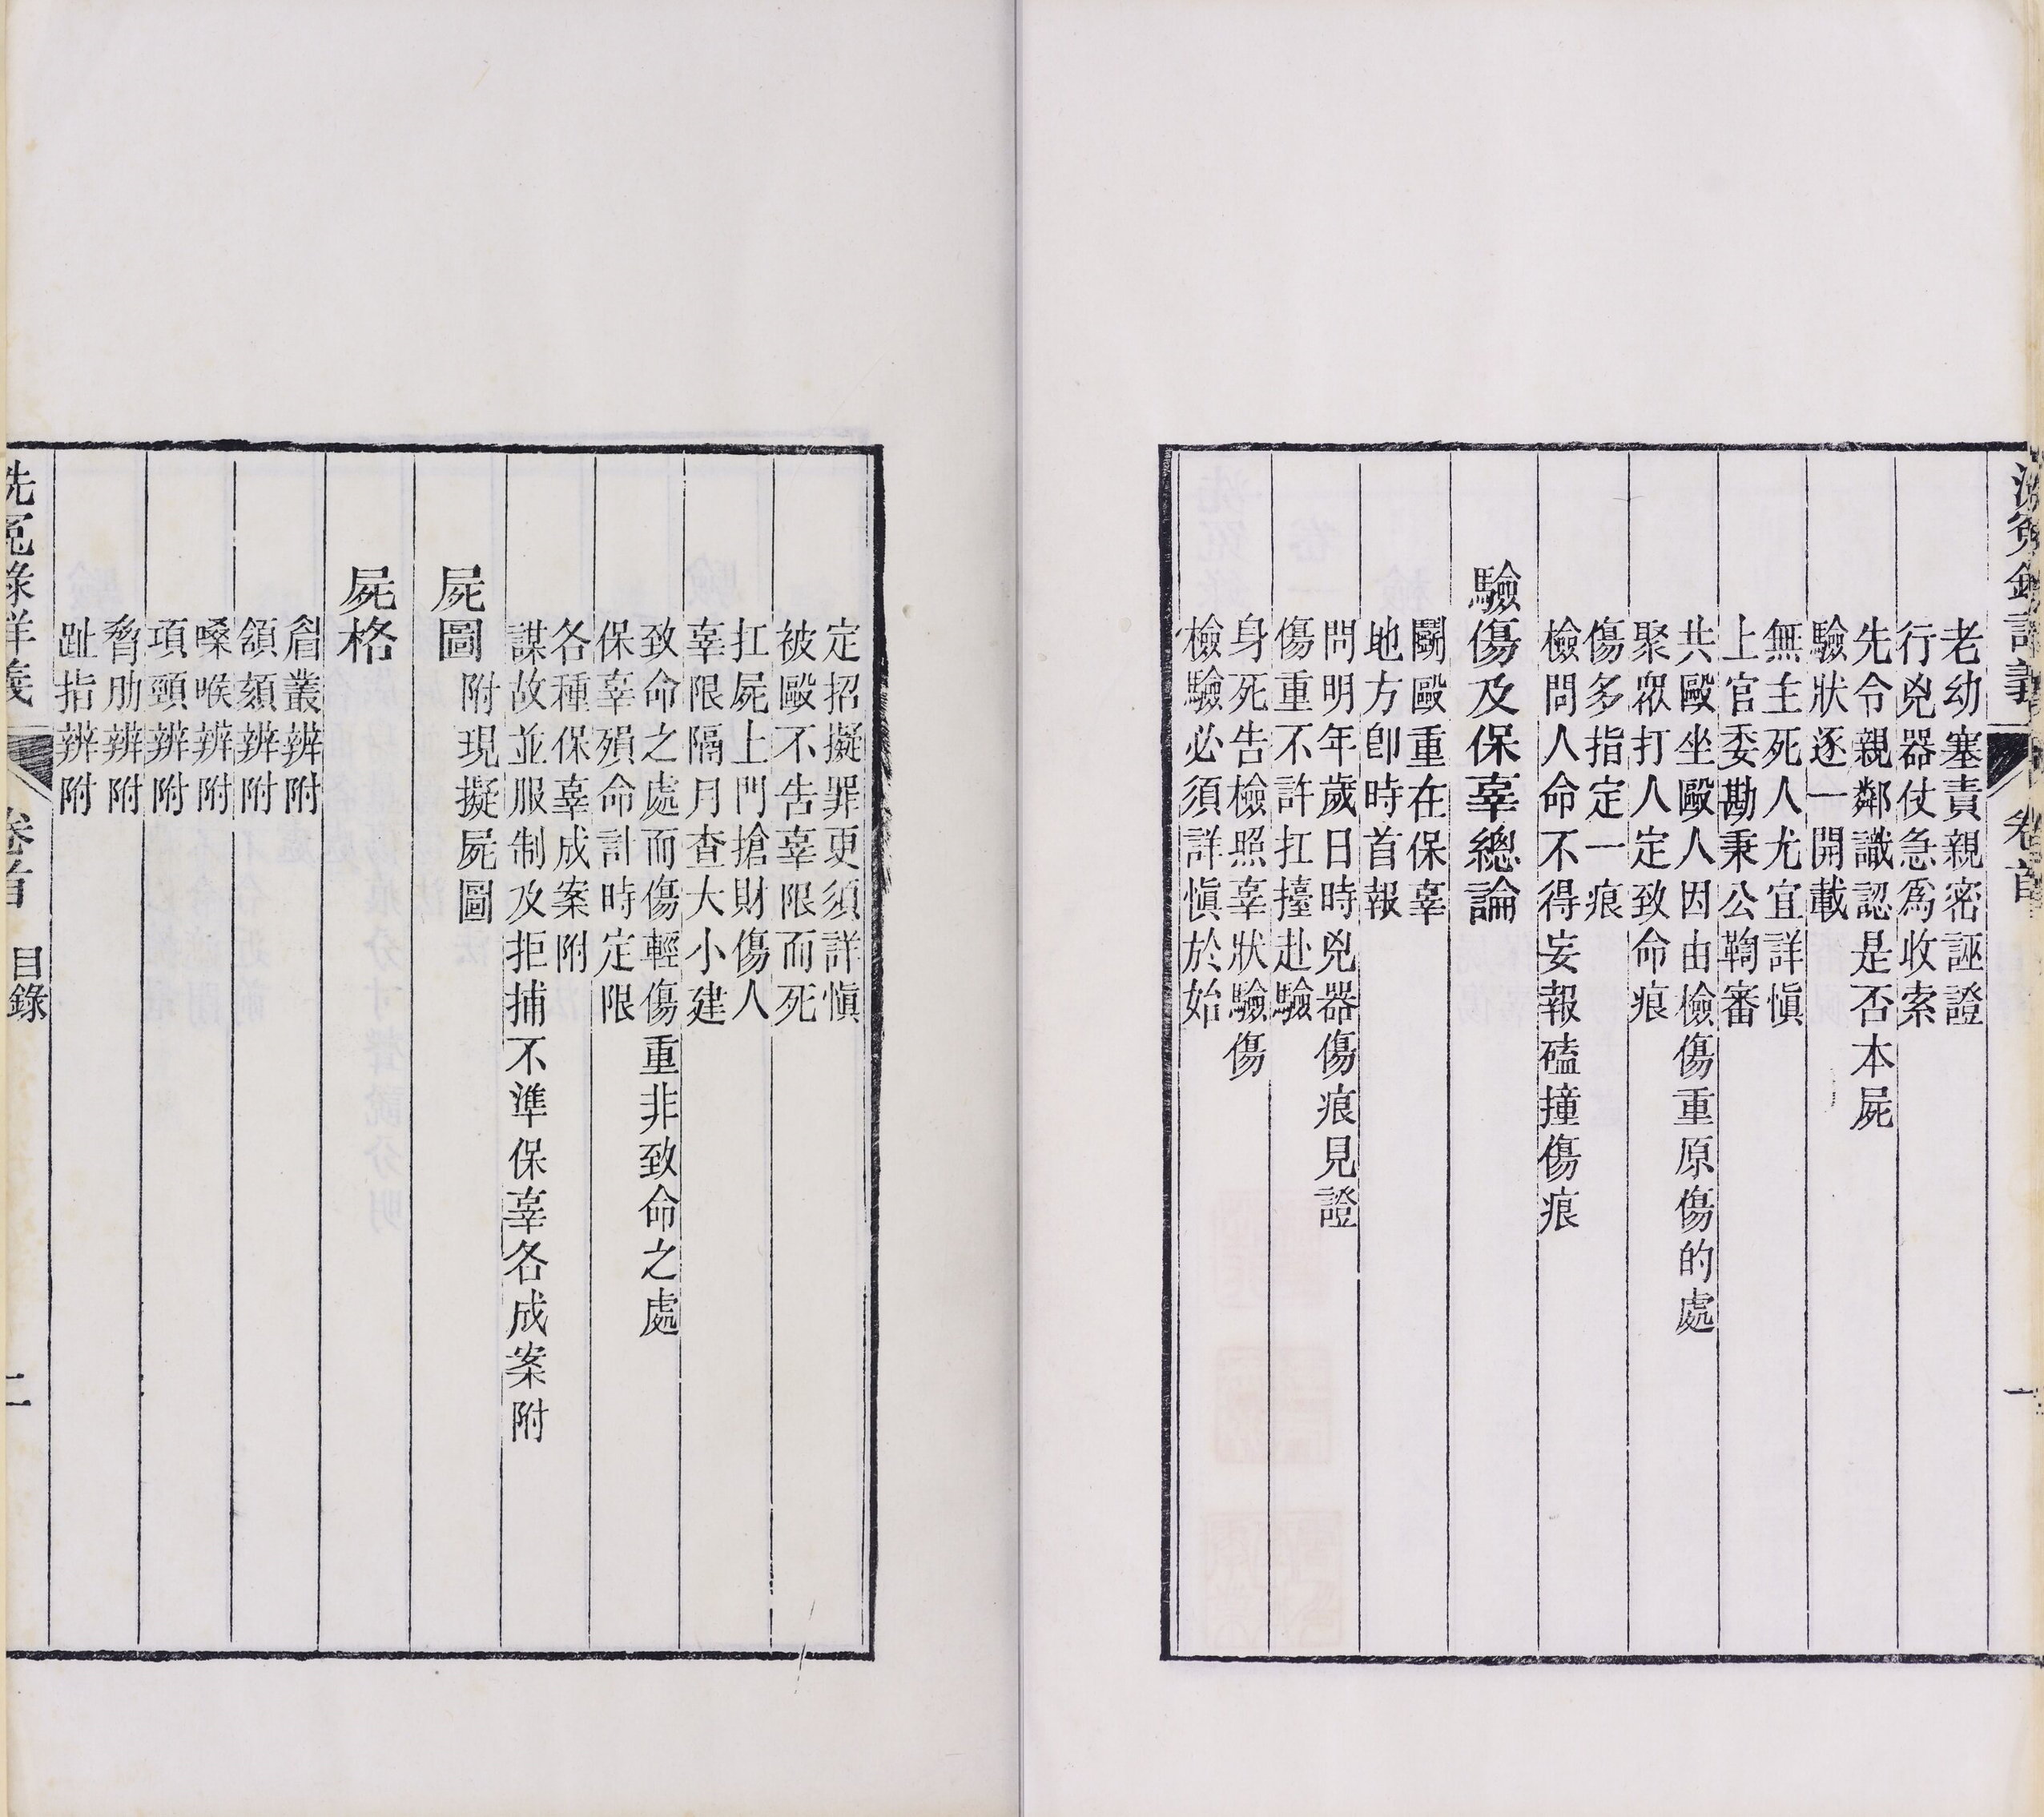 洗冤錄詳義
卷首
一
老幼塞責親密誣證
行兇器仗急爲收索
先令親鄰識認是否本屍
驗狀逐一開載
無主死人尤宜詳愼
上官委勘秉公鞫審
共毆坐毆人因由檢傷重原傷的處
聚眾打人定致命痕
傷多指定一痕
檢問人命不得妄報磕撞傷痕
驗傷及保辜總論
鬭毆重在保辜
地方卽時首報
問明年歲日時兇器傷痕見證
傷重不許扛擡赴驗
身死告檢照辜狀驗傷
檢驗必須詳愼於始
定招擬罪更須詳愼
被毆不告辜限而死
扛屍上門搶財傷人
辜限隔月查大小建
致命之處而傷輕傷重非致命之處
保辜殞命計時定限
各種保辜成案附
謀故並服制及拒捕不準保辜各成案附
屍圖
附現擬屍圖
屍格
眉叢辨附
頷頦辨附
嗓喉辨附
項頸辨附
脅肋辨附
趾指辨附
洗冤錄詳義
卷首
目錄
二